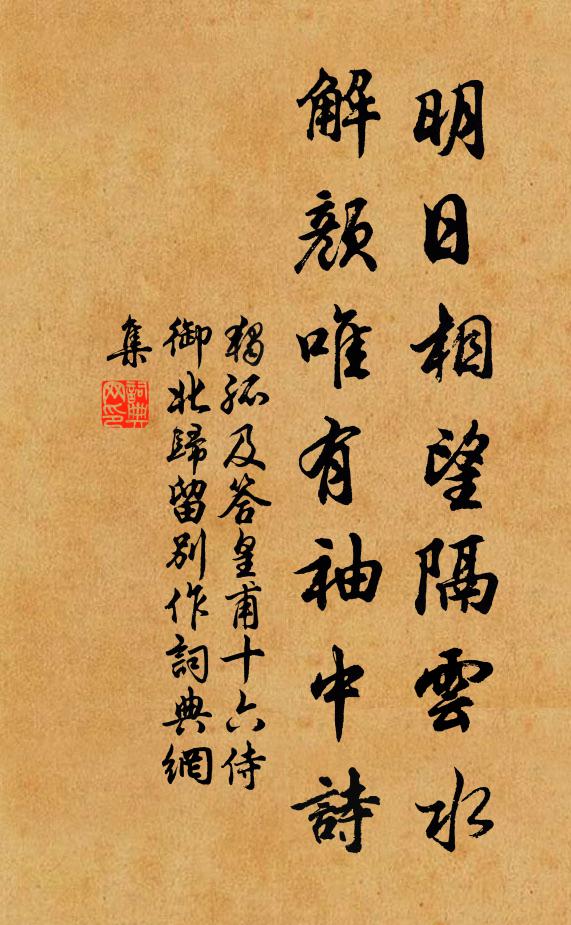 明日相望隔雲水
解顏唯有袖中詩
獨孤及答皇甫十六侍
御北歸留別作詞典網
集
詞典
网印